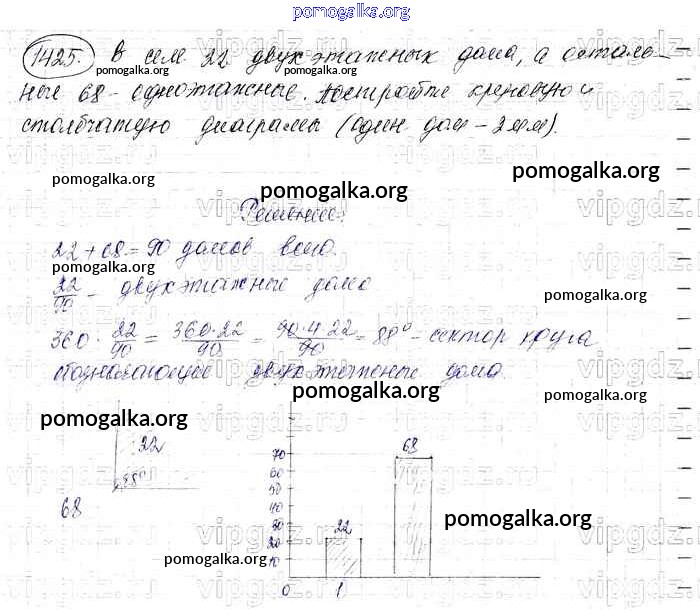 pomogalka.org
1425. В селе 22 двухэтажных дома, а осталь-
pomogalka.org pomogalka.org pomogalka.org
ные 68 - одноэтажные. Постройте круговую и
столбчатую диаграмы (один дом - 2мм).
pomogalka.org
pomogalka.org
pomogalka.org
Решение:
22 + 68 = 90 домов всего.
pomogalka.org
22/90 - двухэтажные дома
pomogalka.org
pomogalka.org
360 · 22/90 = 360·22/90 = 90·4·22/90 = 88° - сектор круга
двухэтажные дома.
pomogalka.org
pomogalka.org
pomogalka.org
22
88°
68
68
70
60
50
40
30
22
20
10
pomogalka.org
pomogalka.org
0 1